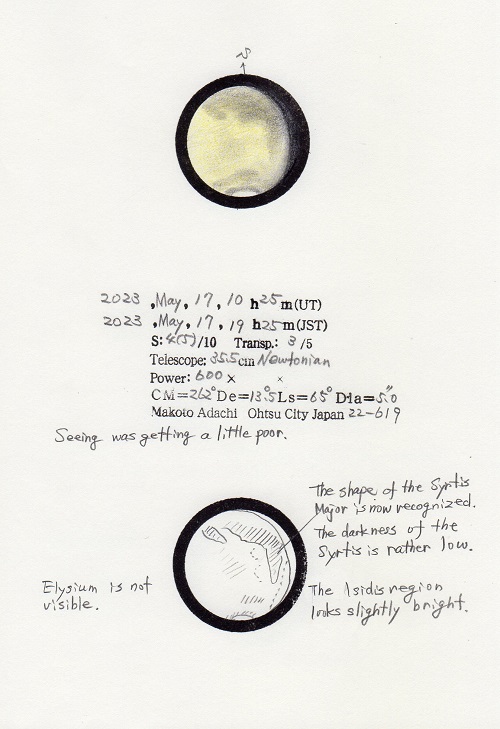 S
2023 ,May, 17, 10 h25m(UT)
2023 ,May, 17, 19 h25m(JST)
S: 4(5)/10 Transp.: 3 /5
Telescope: 35.5cm Newtonian
Power: 600 × ×
CM=262°De=13.5Ls=65° Dia=5.0"
Makoto Adachi Ohtsu City Japan 22-619
Seeing was getting a little poor.
The shape of the Syrtis
Major is now recognized.
The darkness of the
Syrtis is rather low.
Elysium is not
visible.
The Isidis region
looks slightly bright.